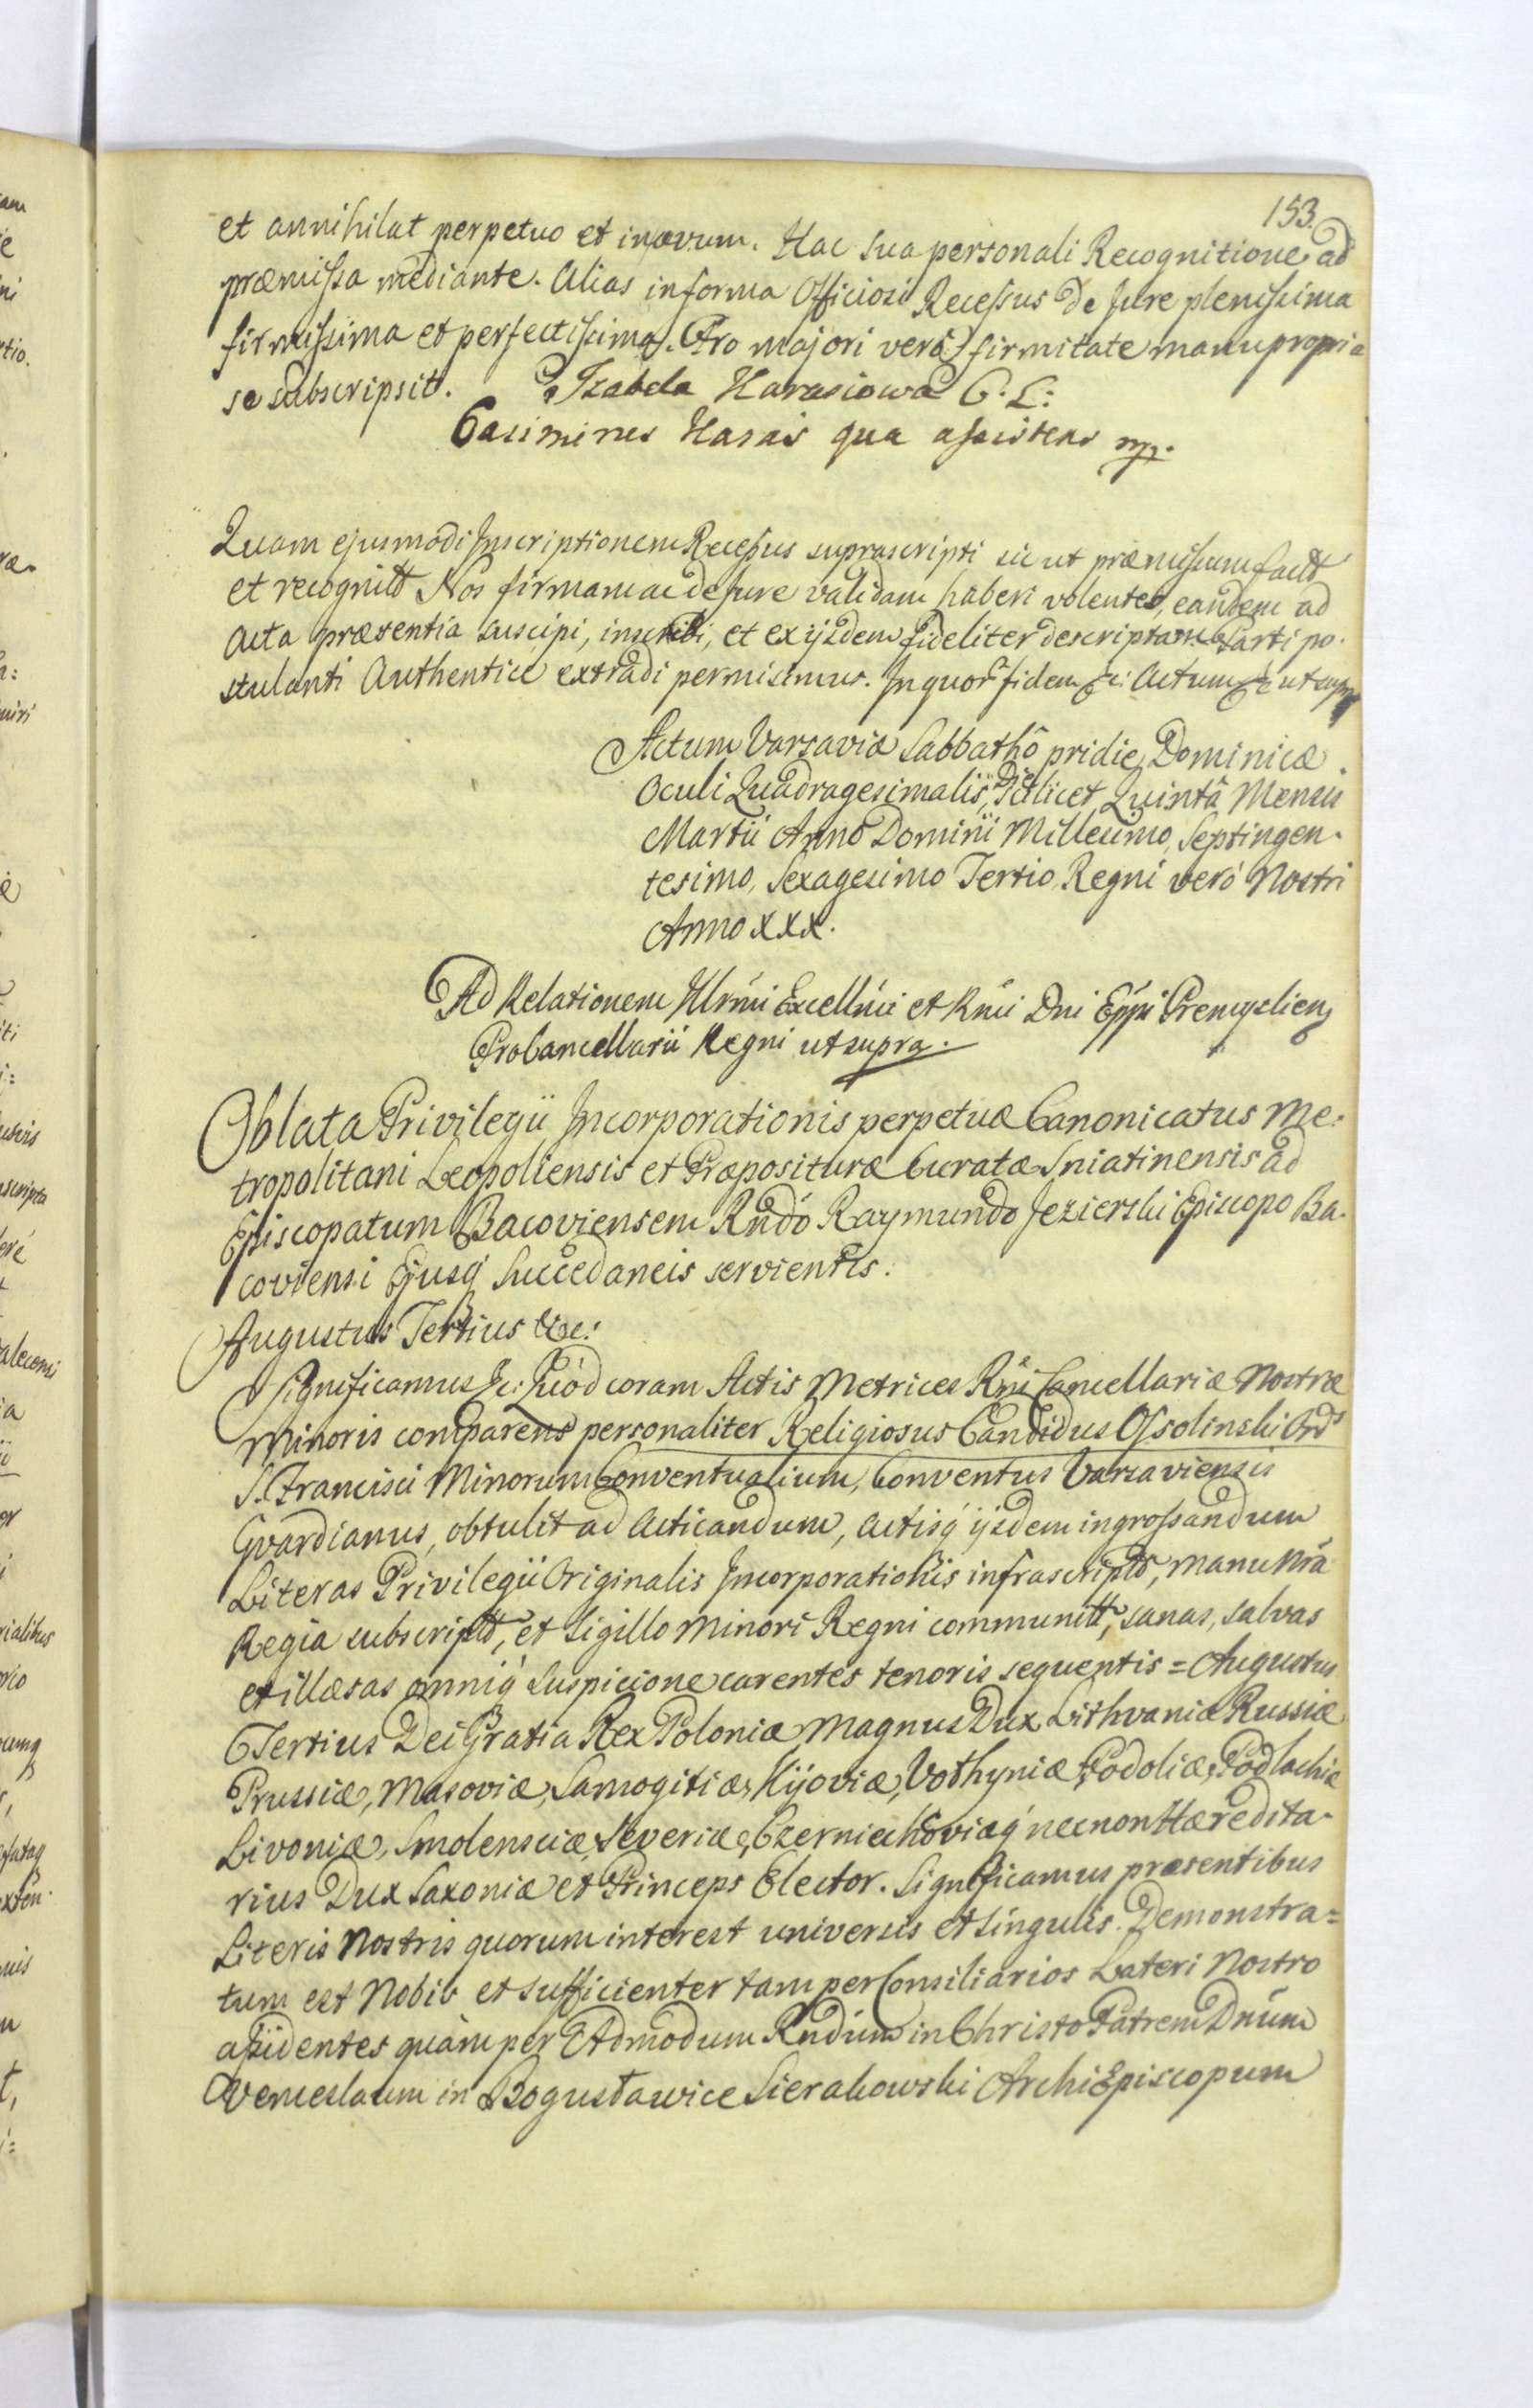 153.
et annihilat perpetuo et inævum. Hac sua personali Recognitione ad
præmissa mediante. Alias in forma Officiosi Recessus de Jure plenissima
firmissima et perfectissima. Pro majori vero firmitate manu propria
se subscripsit. Izabela Harasiowa C. L:
Casimirus Haras qua assistens mp.
Quam ejusmodi Inscriptionem Recessus suprascripti sic ut præmissum fact
et recognitt Nos firmam ac de Jure validam haberi volentes, eandem ad
Acta præsentia suscipi, inscribi, et ex ijsdem fideliter descriptam Parti po-
stulanti Authentice extradi permisimus. In quor fidem &c: Actum &c ut supra
Actum Varsaviæ Sabbathô pridie Dominicæ
Oculi Quadragesimalis, Die scilicet Quintâ Mensis
Martii Anno Domini Millesimo, Septingen-
tesimo, Sexagesimo Tertio, Regni verò Nostri
Anno XXX.
Ad Relationem Illrmi Excellmi et Rmi Dni Eppi Premyslien
ProCancellarii Regni ut supra.
Oblata Privilegii Incorporationis perpetuæ Canonicatus Me-
tropolitani Leopoliensis et Præposituræ Curatæ Sniatinensis ad
Episcopatum Bacoviensem Rndo Raymundo Jezierski Episcopo Ba-
coviensi Ejusq Succedaneis servientis.
Augustus Tertius &c:
Significamus &c: Quod coram Actis Metrices Rni Cancellariæ Nostræ
Minoris comparens personaliter Religiosus Candidus Ossolinski Ords
S. Francisci Minorum Conventualium, Conventus Varsaviensis
Gvardianus, obtulit ad Acticandum, Actisq ijsdem ingrossandum
Literas Privilegii Originalis Incorporationis infrascriptt, manu Nra
Regia subscriptt, et Sigillo Minori Regni communitt, sanas, salvas
et illæsas omniq suspicione carentes tenoris sequentis = Augustus
Tertius Dei Gratia Rex Poloniæ, Magnus Dux Lithvaniæ Russiæ
Prussiæ, Masoviæ, Samogitiæ, Kijoviæ, Volhyniæ, Podoliæ, Podlachiæ
Livoniæ, Smolensciæ, Severiæ, Czerniechoviæq necnon Hæredita-
rius Dux Saxoniæ et Princeps Elector. Significamus præsentibus
Literis Nostris quorum interest universis et singulis. Demonstra=
tum est Nobis et sufficienter tam per Consiliarios Lateri Nostro
assidentes quàm per Admodum Rndum in Christo Patrem Dnum
Venceslaum in Bogusławice Sierakowski ArchiEpiscopum